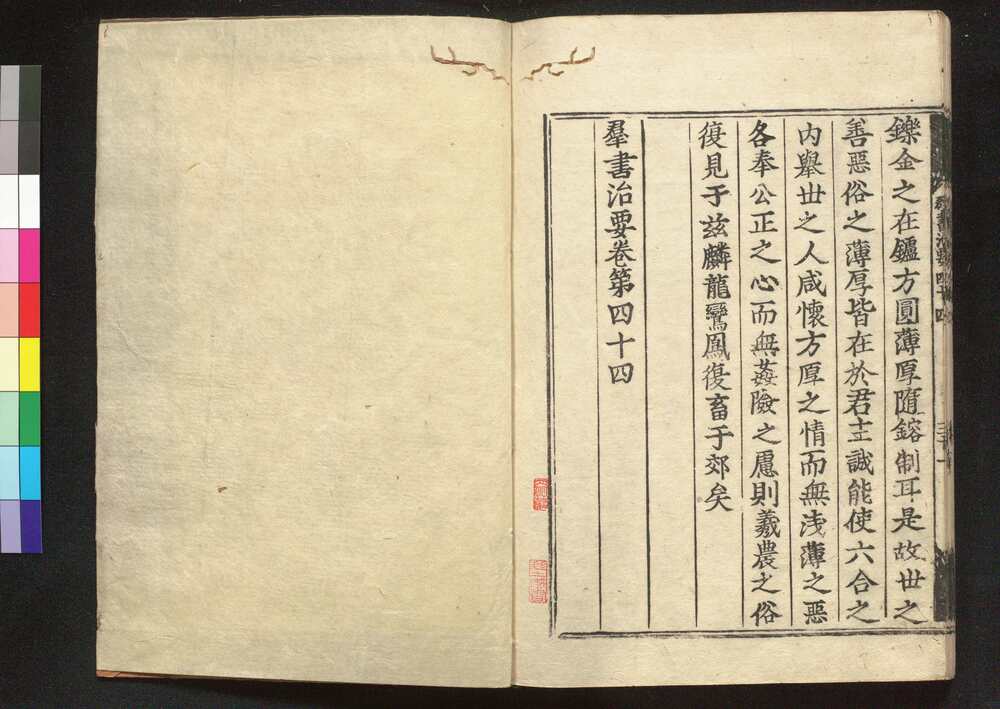 鑠金之在鑪方圓薄厚隨鎔制耳是故丗之
善惡俗之薄厚皆在於君主誠能使六合之
内舉丗之人咸懷方厚之情而無淺薄之惡
各奉公正之心而無姦險之慮則羲農之俗
復見于玆麟龍鸞鳳復畜于郊矣
羣書治要卷第四十四